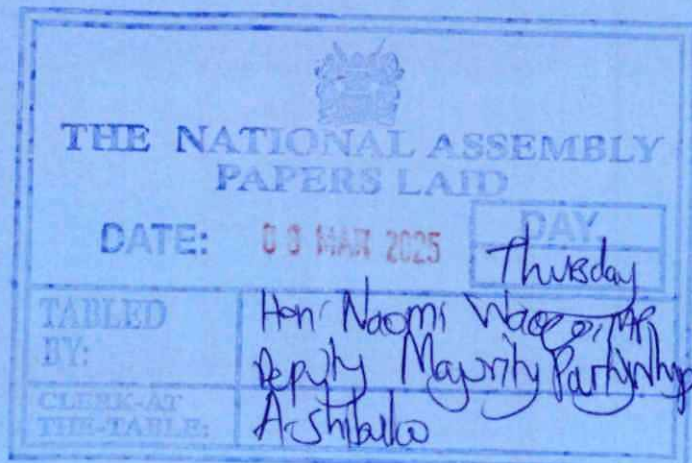 THE NATIONAL ASSEMBLY
PAPERS LAID
DATE: MAR 2025 DAY
Thursday
TABLED BY: Hon. Naomi Waqo, MP
Deputy Majority Party Whip
CLERK-AT THE-TABLE: